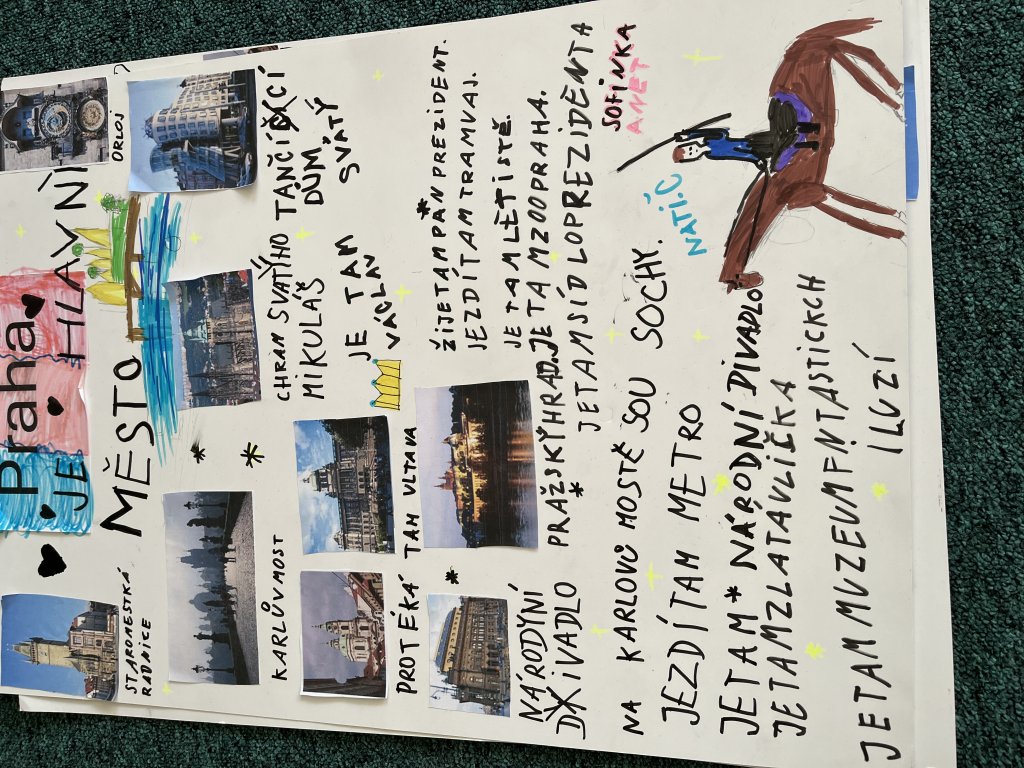 Praha
JE HLAVNÍ
MĚSTO
ORLOJ
STAROMĚSTKÁ
RADNICE
KARLŮVMOST
CHRAN SVATÍHO
MIKULÁŠ
TANČÍCÍ
DŮM
SVATÝ
JE TAM
VÁCLAV
PROTÉKÁ TAM VLTAVA
ŽIJETAMPÁNPREZIDENT.
JEZDÍTAMTRAMVAJ.
JETAMLETIŠTĚ.
JETAMZOOPRAHA.
PRÁŽSKÝHRAD.
JETAMSÍDLOPREZIDENTA
NÁRODÝNÍ
DIVADLO
NA KARLOVŮ MOSTĚ SOU SOCHY.
JEZDÍTAM METRO
JETAM NÁRODNÍ DIVADLO
JETAMZLATAVLIČKA
JETAMMUZEUMFNTASTICKCH
ILUZÍ
SOFINKA
ANET
NATIČ